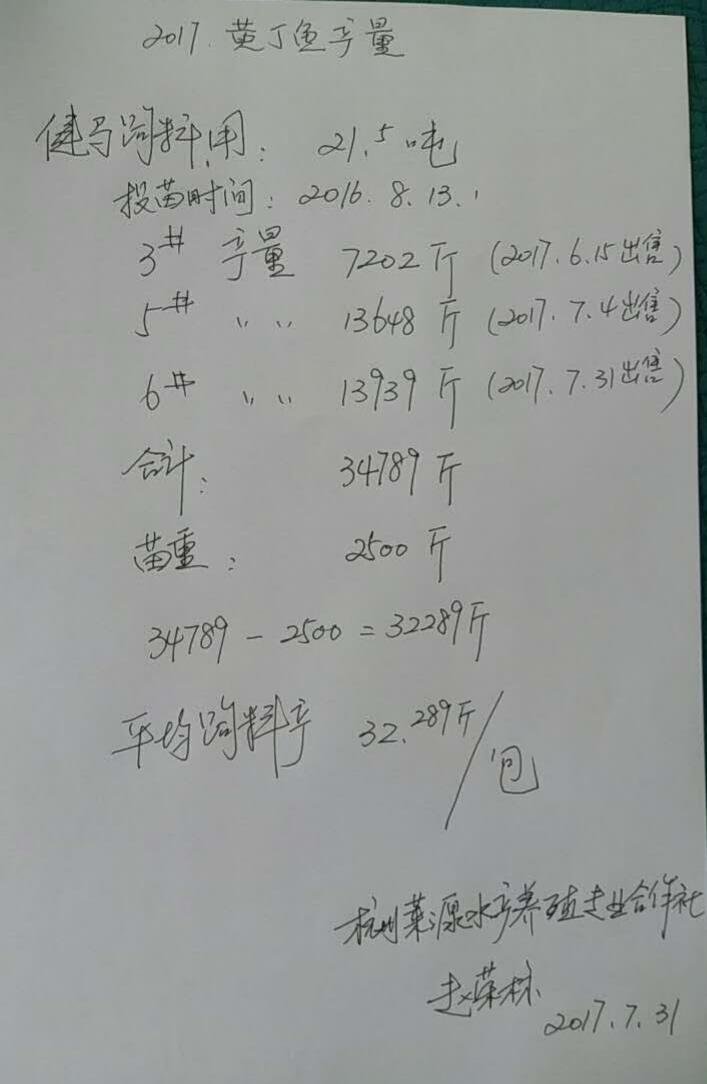 2017.黄丁鱼产量
健马饲料用: 21.5吨
投苗时间: 2016.8.13.
3# 产量 7202斤 (2017.6.15出售)
5# 〃 〃 13648斤 (2017.7.4出售)
6# 〃 〃 13939斤 (2017.7.31出售)
合计: 34789斤
苗重: 2500斤
34789-2500=32289斤
平均饲料产 32.289斤/包
杭州莱源水产养殖专业合作社
赵荣林
2017.7.31